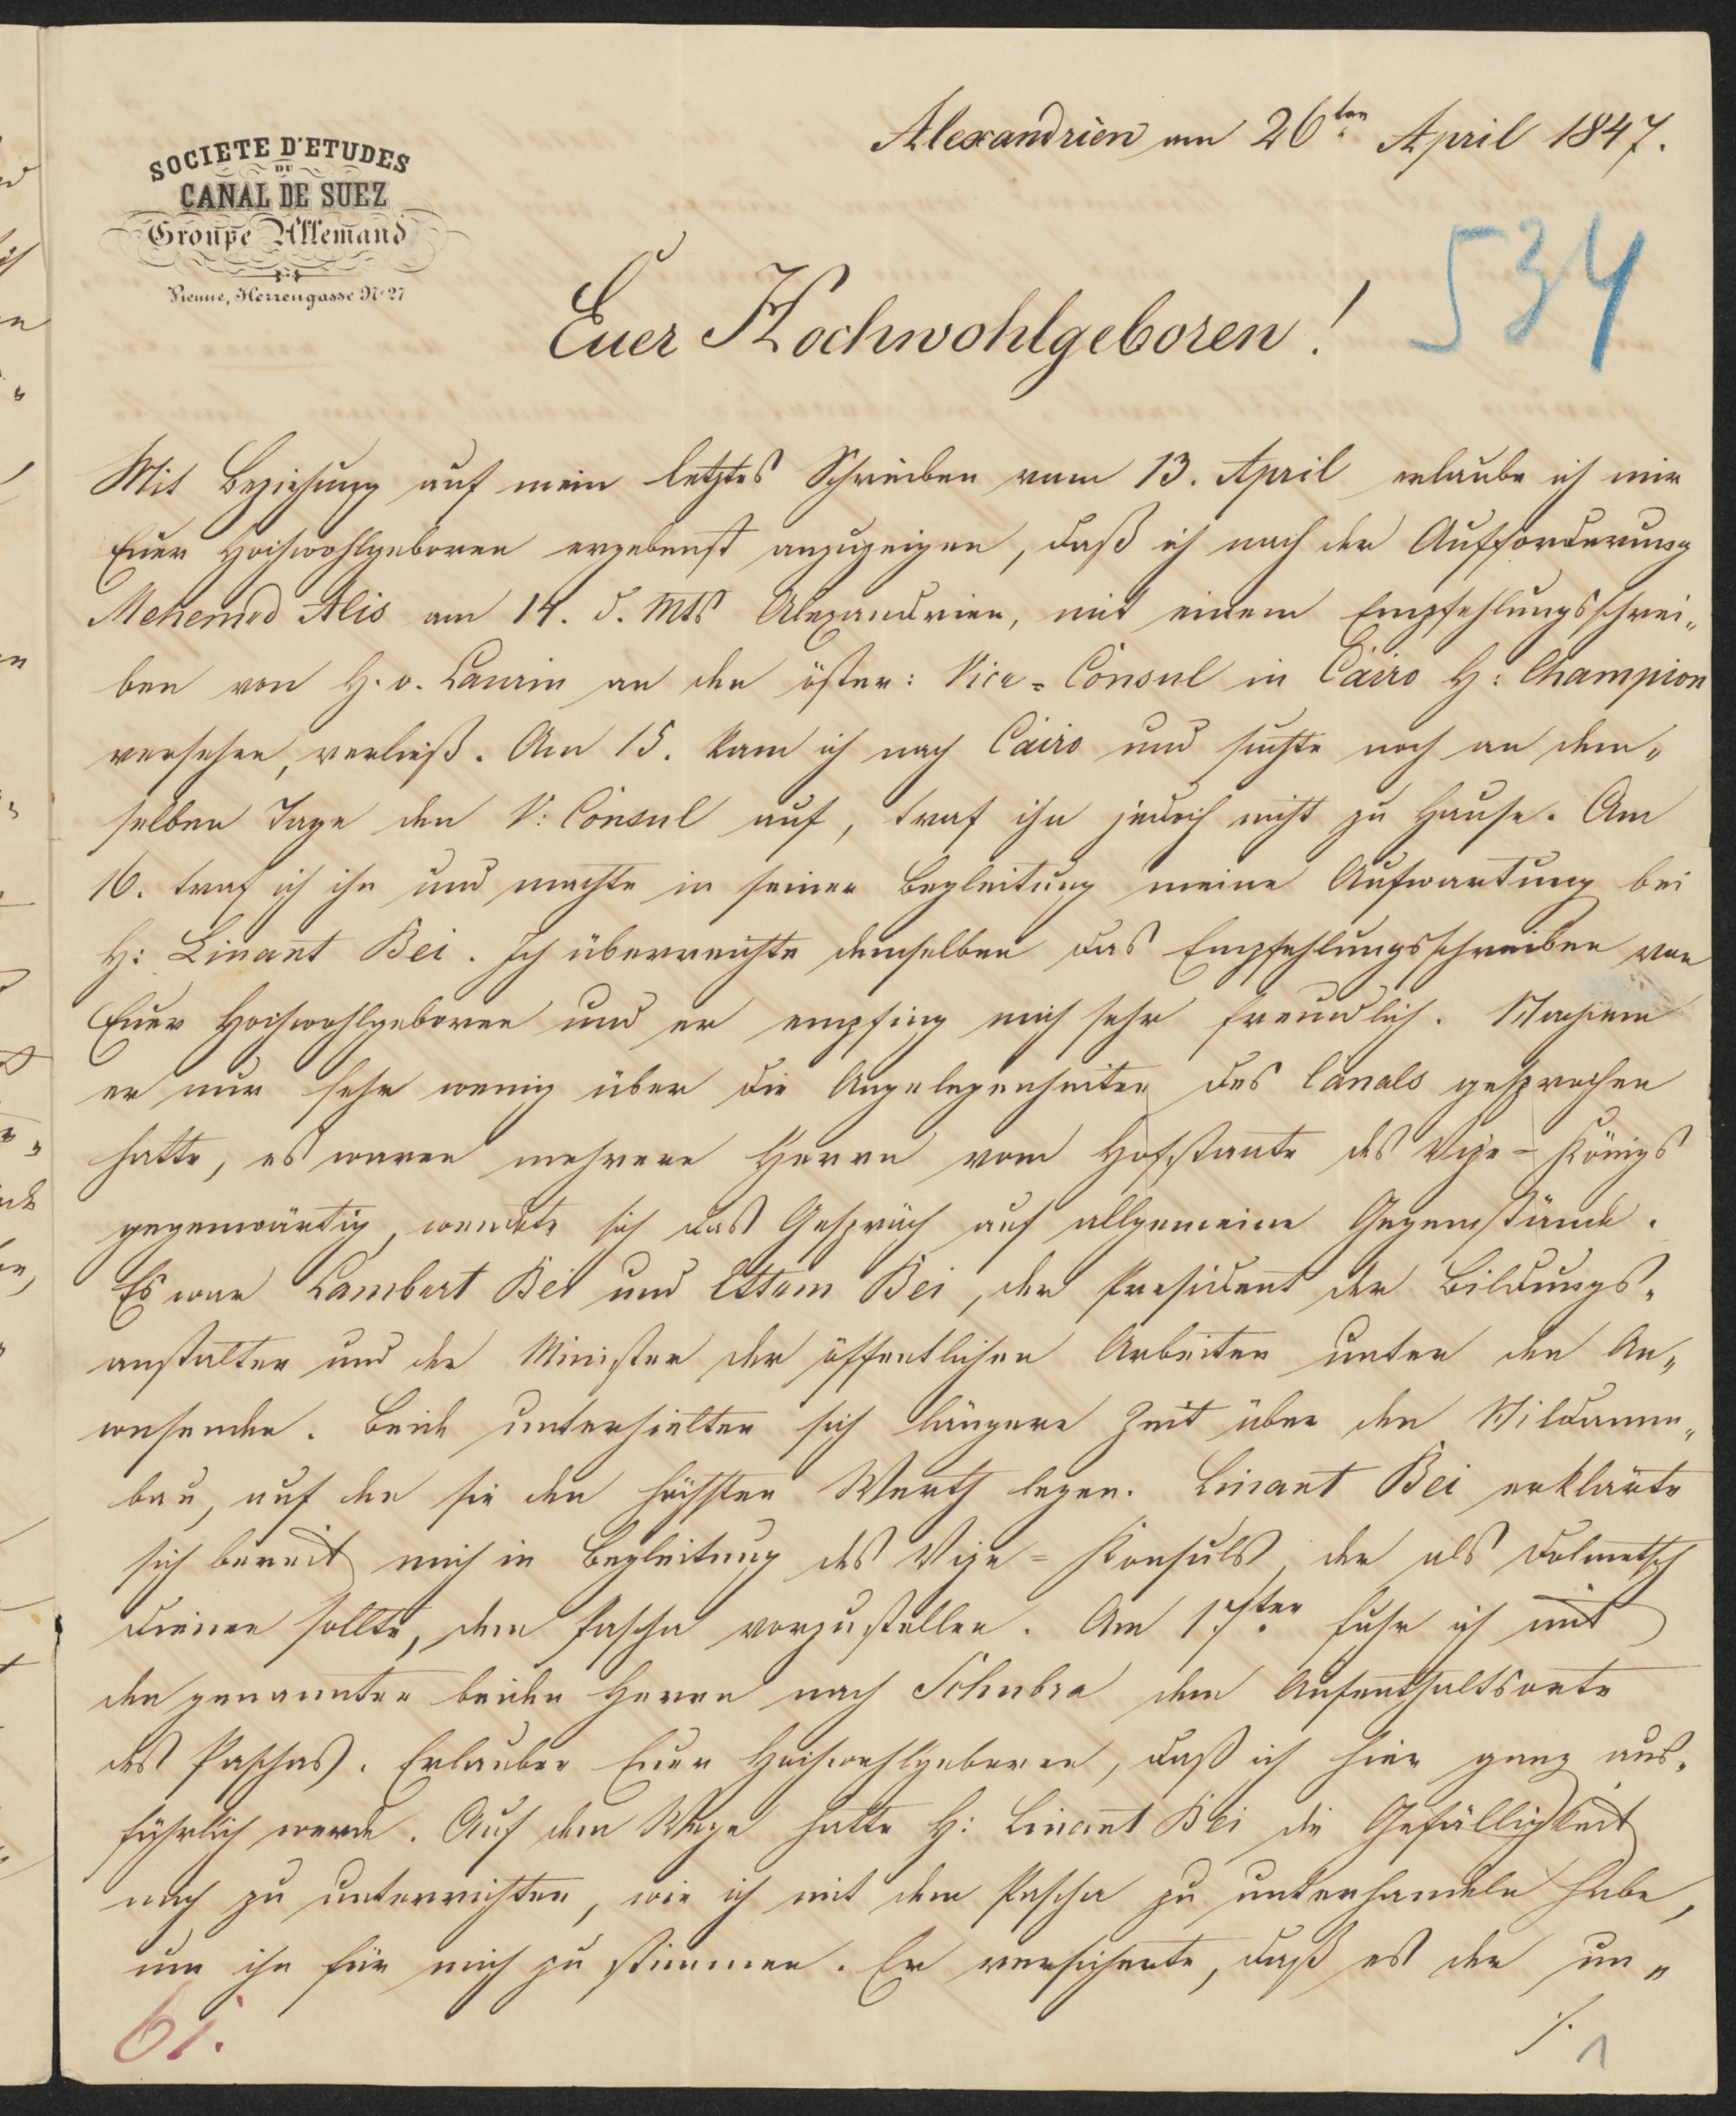 Alexandrien am 26ten April 1847.
SOCIETE D'ETUDES
DU
CANAL DE SUEZ
Groupe Allemand
Vienne, Herrengasse No 27
534
Euer Hochwohlgeboren!
Mit Beziehung auf mein letztes Schreiben vom 13. April erlaube ich mir
Euer Hochwohlgeboren ergebenst anzuzeigen, daß ich nach der Aufforderung
Mehemed Alis am 14. d. Mts Alexandrien, mit einem Empfehlungsschrei„
ben von H. v. Laurin an den öster: Vice=Consul in Cairo H: Champion
versehen, verließ. Am 15. kam ich nach Cairo und suchte noch an dem„
selben Tage den V: Consul auf, traf ihn jedoch nicht zu Hause. Am
16. traf ich ihn und machte in seiner Begleitung meine Aufwartung bei
H: Linant Bei. Ich überreichte demselben das Empfehlungsschreiben von
Euer Hochwohlgeboren und er empfing mich sehr freundlich. Nachdem
er nur sehr wenig über die Angelegenheiten des Canals gesprochen
hatte, es waren mehrere Herrn vom Hofstaate des Vize=Königs
gegenwärtig, wendete sich das Gespräch auf allgemeine Gegenstände.
Es war Lambert Bei und Ettem Bei, der President der Bildungs„
anstalten und der Minister der öffentlichen Arbeiten unter den An„
wesenden. Beide unterhielten sich längere Zeit über den Nildamm„
bau, auf den sie den höchsten Werth legen. Linant Bei erklärte
sich bereit mich in Begleitung des Vize=Konsuls, der als Dolmetsch
dienen sollte, dem Pascha vorzustellen. Am 17ten fuhr ich mit
den genannten beiden Herren nach Schubra dem Aufenthaltsorte
des Paschas. Erlauben Euer Hochwohlgeboren, daß ich hier ganz aus„
führlich werde. Auf dem Wege hatte H: Linant Bei die Gefälligkeit
mich zu unterrichten, wie ich mit dem Pascha zu unterhandeln habe,
um ihn für mich zu stimmen. Er versicherte, daß es der un„
61.
./.
1